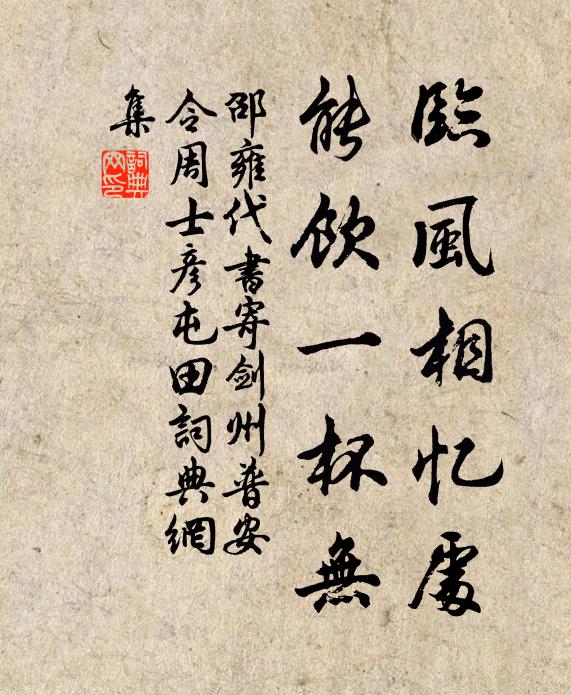 臨風相忆處
能飲一杯無
邵雍代書寄劍州普安
令周士彦屯田詞典網
集
詞典网印